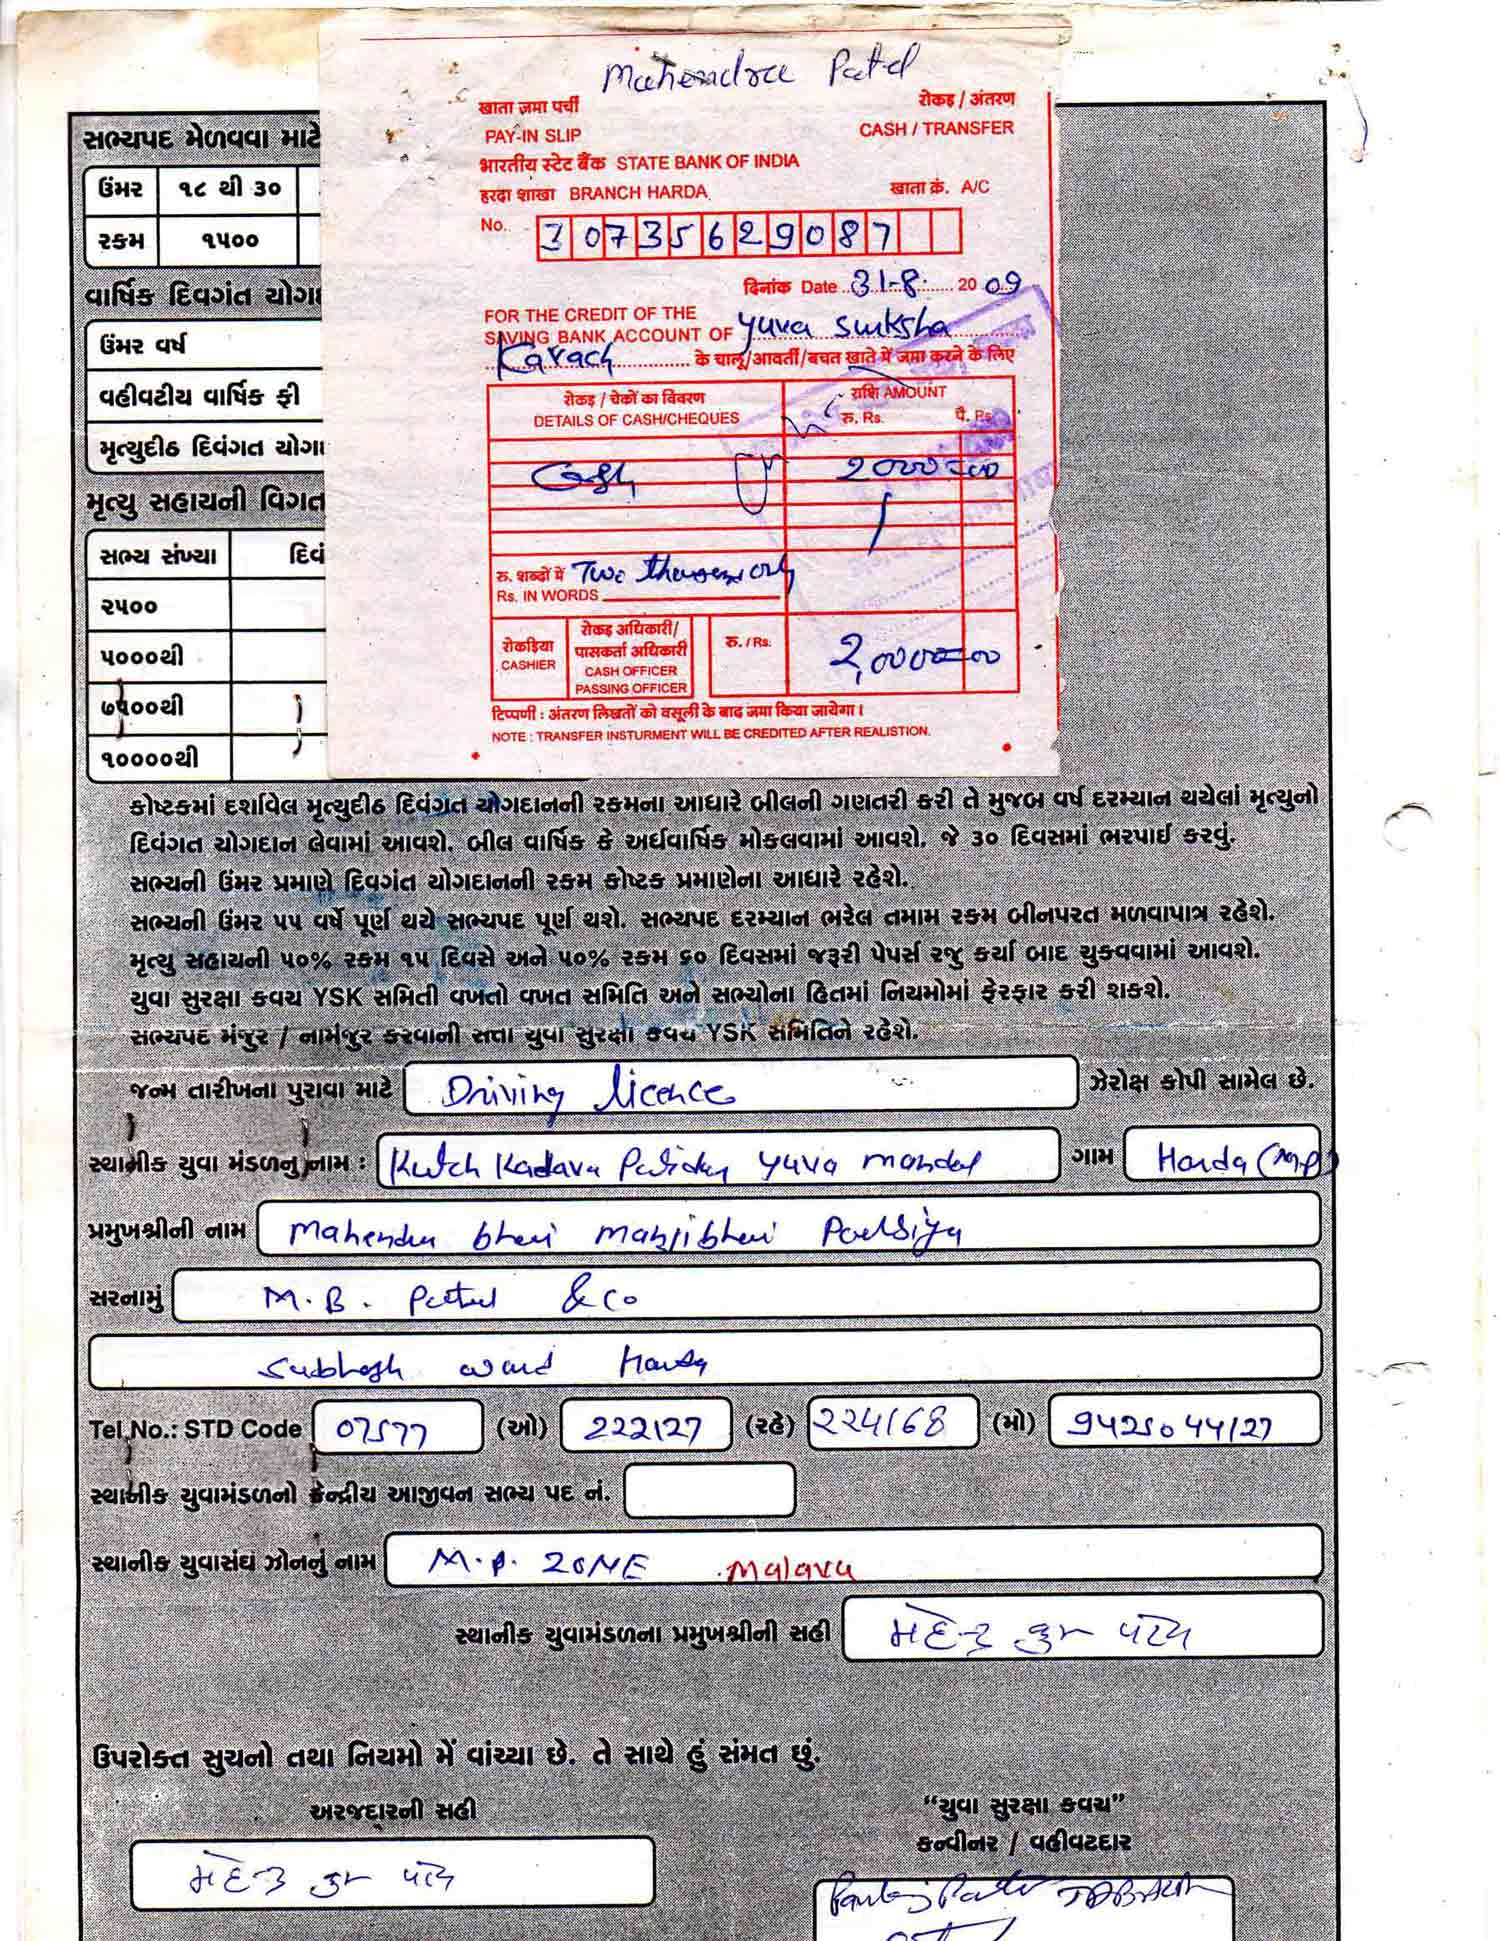 Mahendra Patel
खाता ज़मा पर्ची
रोकड़ / अंतरण
PAY-IN SLIP
CASH / TRANSFER
भारतीय स्टेट बैंक STATE BANK OF INDIA
हरदा शाखा BRANCH HARDA
खाता क्रं. A/C
No. 30735629087
दिनांक Date 31-8. 2009
FOR THE CREDIT OF THE
SAVING BANK ACCOUNT OF Yuva Surksha
Kavach के चालू/आवर्ती/बचत खाते में जमा करने के लिए
रोकड़ / चेकों का विवरण
DETAILS OF CASH/CHEQUES
राशि AMOUNT
रु. Rs. पै. Ps.
Cash 2000=00
रु. शब्दों में Two thousand only
Rs. IN WORDS
रोकड़िया
CASHIER
रोकड़ अधिकारी/
पासकर्ता अधिकारी
CASH OFFICER
PASSING OFFICER
रु. / Rs. 2,000=00
टिप्पणी : अंतरण लिखतों को वसूली के बाद जमा किया जायेगा।
NOTE : TRANSFER INSTURMENT WILL BE CREDITED AFTER REALISTION.
સભ્યપદ મેળવવા માટે
ઉંમર ૧૮ થી ૩૦
રકમ ૧૫૦૦
વાર્ષિક દિવગંત
ઉંમર વર્ષ
વહીવટીય વાર્ષિક ફી
મૃત્યુદીઠ દિવંગત
મૃત્યુ સહાયની વિગત
સભ્ય સંખ્યા
૨૫૦૦
૫૦૦૦થી
૭૫૦૦થી
૧૦૦૦૦થી
કોષ્ટકમાં દર્શાવેલ મૃત્યુદીઠ દિવંગત યોગદાનની રકમના આધારે બીલની ગણતરી કરી તે મુજબ વર્ષ દરમ્યાન થયેલાં મૃત્યુનો
દિવંગત યોગદાન લેવામાં આવશે. બીલ વાર્ષિક કે અર્ધવાર્ષિક મોકલવામાં આવશે. જે ૩૦ દિવસમાં ભરપાઈ કરવું.
સભ્યની ઉંમર પ્રમાણે દિવગંત યોગદાનની રકમ કોષ્ટક પ્રમાણેના આધારે રહેશે.
સભ્યની ઉંમર ૫૫ વર્ષે પૂર્ણ થયે સભ્યપદ પૂર્ણ થશે. સભ્યપદ દરમ્યાન ભરેલ તમામ રકમ બીનપરત મળવાપાત્ર રહેશે.
મૃત્યુ સહાયની ૫૦% રકમ ૧૫ દિવસે અને ૫૦% રકમ ૬૦ દિવસમાં જરૂરી પેપર્સ રજુ કર્યા બાદ ચુકવવામાં આવશે.
યુવા સુરક્ષા કવચ YSK સમિતી વખતો વખત સમિતિ અને સભ્યોના હિતમાં નિયમોમાં ફેરફાર કરી શકશે.
સભ્યપદ મંજુર / નામંજુર કરવાની સત્તા યુવા સુરક્ષા કવચ YSK સમિતિને રહેશે.
જન્મ તારીખના પુરાવા માટે Driving licence ઝેરોક્ષ કોપી સામેલ છે.
સ્થાનીક યુવા મંડળનુ નામ : Kutch Kadava Patidar Yuva mandal ગામ Harda (M.P)
પ્રમુખશ્રીની નામ Mahendra bhai Manjibhai
સરનામું M.B. Patel & co
Subhash ward Harda
Tel.No.: STD Code 07577 (ઓ) 222127 (રહે) 224168 (મો) 9425044127
સ્થાનીક યુવામંડળનો કેન્દ્રીય આજીવન સભ્ય પદ નં.
સ્થાનીક યુવાસંઘ ઝોનનું નામ M.P. ZONE Malava
સ્થાનીક યુવામંડળના પ્રમુખશ્રીની સહી
ઉપરોક્ત સુચનો તથા નિયમો મેં વાંચ્યા છે. તે સાથે હું સંમત છું.
અરજદારની સહી
"યુવા સુરક્ષા કવચ"
કન્વીનર / વહીવટદાર